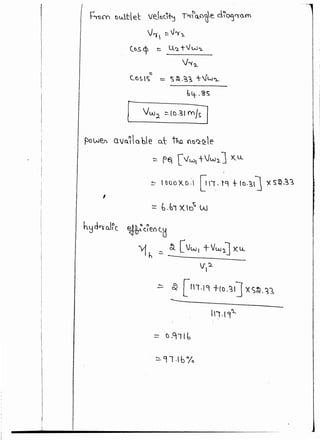 From outlet velocity Triangle diagram
Vr₁ = Vr₂
Cosφ = u₂+Vw₂
Vr₂
Cos15° = 52.33 +Vw₂
64.85
Vw₂ = 10.31 m/s
power available at the nozzle
= ρQ [Vw₁+Vw₂] xu
= 1000X0.1 [117.19 + 10.31] x52.33
= 6.67 X10⁵ W
hydralic efficiency
ηh = 2 [Vw₁ + Vw₂] xu
V₁²
= 2 [117.19 +10.31] x52.33
117.19²
= 0.9716
= 97.16%